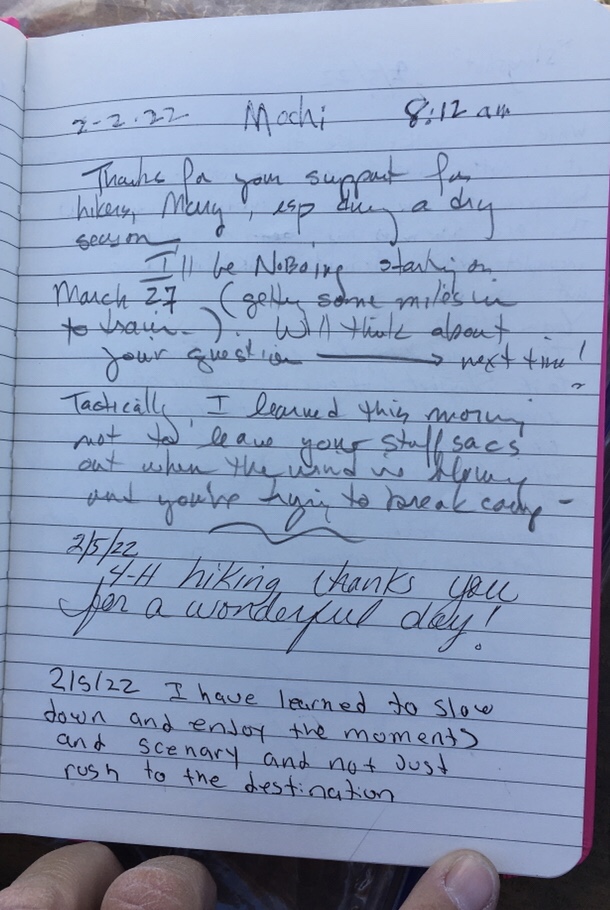 2-2-22 Mochi 8:12 am
Thanks for your support for
hikers, Mary, esp during a dry
season
I'll be NoBoing starting on
March 27 (getting some miles in
to train-). Will think about
your question → next time!
Tactically, I learned this morning
not to leave your stuff sacs
out when the wind is blowing
and you're trying to break camp -
2/5/22
4-H hiking thanks you
for a wonderful day!
2/5/22 I have learned to slow
down and enjoy the moments
and scenary and not just
rush to the destination